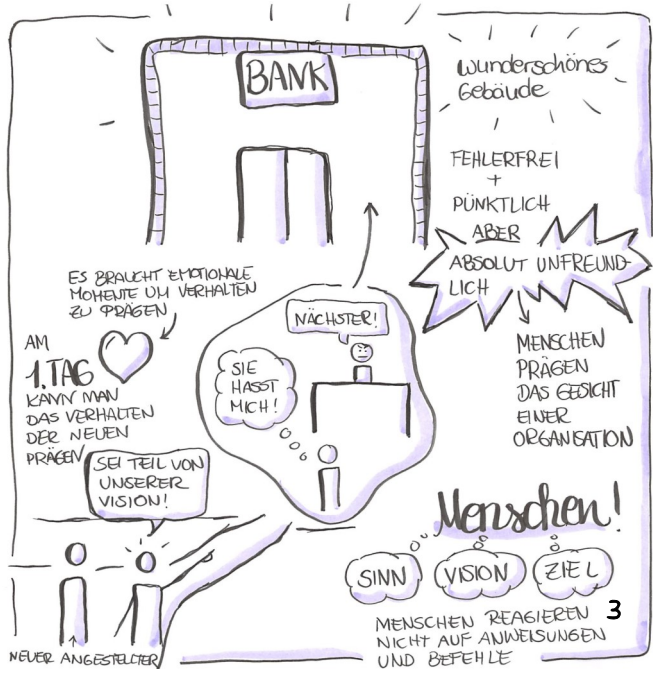 BANK
Wunderschönes
Gebäude
FEHLERFREI
+
PÜNKTLICH
ABER
ABSOLUT UNFREUND-
LICH
MENSCHEN
PRÄGEN
DAS GESICHT
EINER
ORGANISATION
ES BRAUCHT EMOTIONALE
MOMENTE UM VERHALTEN
ZU PRÄGEN
AM
1.TAG
KANN MAN
DAS VERHALTEN
DER NEUEN
PRÄGEN
NÄCHSTER!
SIE
HASST
MICH!
SEI TEIL VON
UNSERER
VISION!
NEUER ANGESTELLTER
Menschen!
SINN
VISION
ZIEL
MENSCHEN REAGIEREN
NICHT AUF ANWEISUNGEN
UND BEFEHLE
3